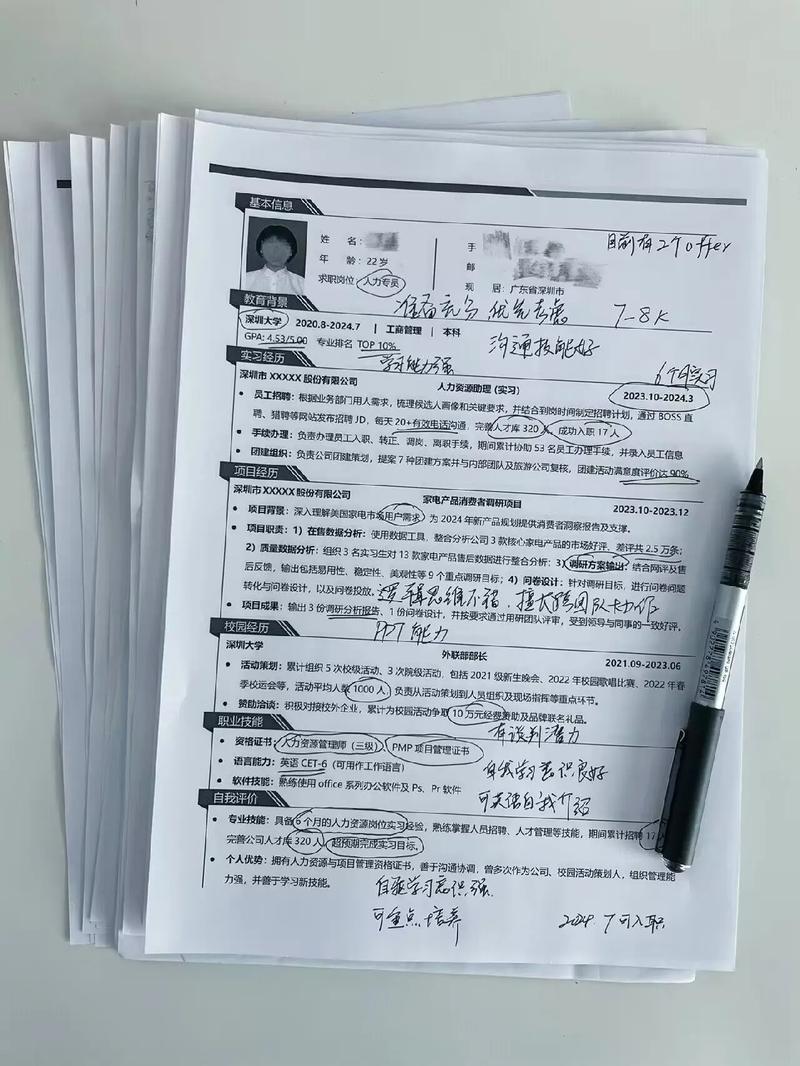 基本信息
姓 名：
手
目前有2个offer
年 龄：22岁
邮
求职岗位：人力专员
现 居：广东省深圳市
准备充分 优先考虑 7-8K
教育背景
深圳大学 2020.8-2024.7 | 工商管理 | 本科
沟通技能好
GPA: 4.53/5.00 专业排名 TOP 10%
学习能力强
6个月实习
实习经历
深圳市XXXXX股份有限公司 人力资源助理（实习） 2023.10-2024.3
• 员工招聘：根据业务部门用人需求，梳理候选人画像和关键要求，并结合到岗时间制定招聘计划，通过 BOSS 直
聘、猎聘等网站发布招聘 JD，每天 20+有效电话沟通，完善人才库 320 人，成功入职 17 人
• 手续办理：负责办理员工入职、转正、调岗、离职手续，期间累计协助 53 名员工办理手续，并录入员工信息
• 团建组织：负责公司团建策划，提案 7 种团建方案并与内部团队及旅游公司复核，团建活动满意度评价达 90%
项目经历
深圳市XXXXX股份有限公司 家电产品消费者调研项目 2023.10-2023.12
• 项目背景：深入理解美国家电市场用户需求，为 2024 年新产品规划提供消费者洞察报告及支撑。
• 项目职责：1）在售数据分析：使用数据工具，整合分析公司 3 款核心家电产品的市场好评、差评共 2.5 万条；
2）质量数据分析：组织 3 名实习生对 13 款家电产品售后数据进行整合分析；3）调研方案输出：结合网评及售
后反馈，输出包括易用性、稳定性、美观性等 9 个重点调研目标；4）问卷设计：针对调研目标，进行问卷问题
转化与问卷设计，以及问卷投放。
逻辑思维不错，擅长跨团队协作
• 项目成果：输出 3 份调研分析报告、1 份问卷设计，并按要求通过用研团队评审，受到领导与同事的一致好评。
PPT能力
校园经历
深圳大学 外联部部长 2021.09-2023.06
• 活动策划：累计组织 5 次校级活动、3 次院级活动，包括 2021 级新生晚会、2022 年校园歌唱比赛、2022 年春
季校运会等，活动平均人数 1000 人，负责从活动策划到人员组织及现场指挥等重点环节。
• 赞助洽谈：积极对接校外企业，累计为校园活动争取 10 万元经费赞助及品牌联名礼品。
有谈判潜力
职业技能
• 资格证书：人力资源管理师（三级） PMP 项目管理证书
• 语言能力：英语 CET-6（可用作工作语言）
自我学习意识良好
• 软件技能：熟练使用 office 系列办公软件及 Ps、Pr 软件
可英语自我介绍
自我评价
• 专业技能：具备 6 个月的人力资源岗位实习经验，熟练掌握人员招聘、人才管理等技能，期间累计招聘 17
完善公司人才库 320 人，超预期完成实习目标。
• 个人优势：拥有人力资源与项目管理资格证书，善于沟通协调，曾多次作为公司、校园活动策划人，组织管理能
力强，并善于学习新技能。
自驱学习意识强
可重点培养
2024.7可入职